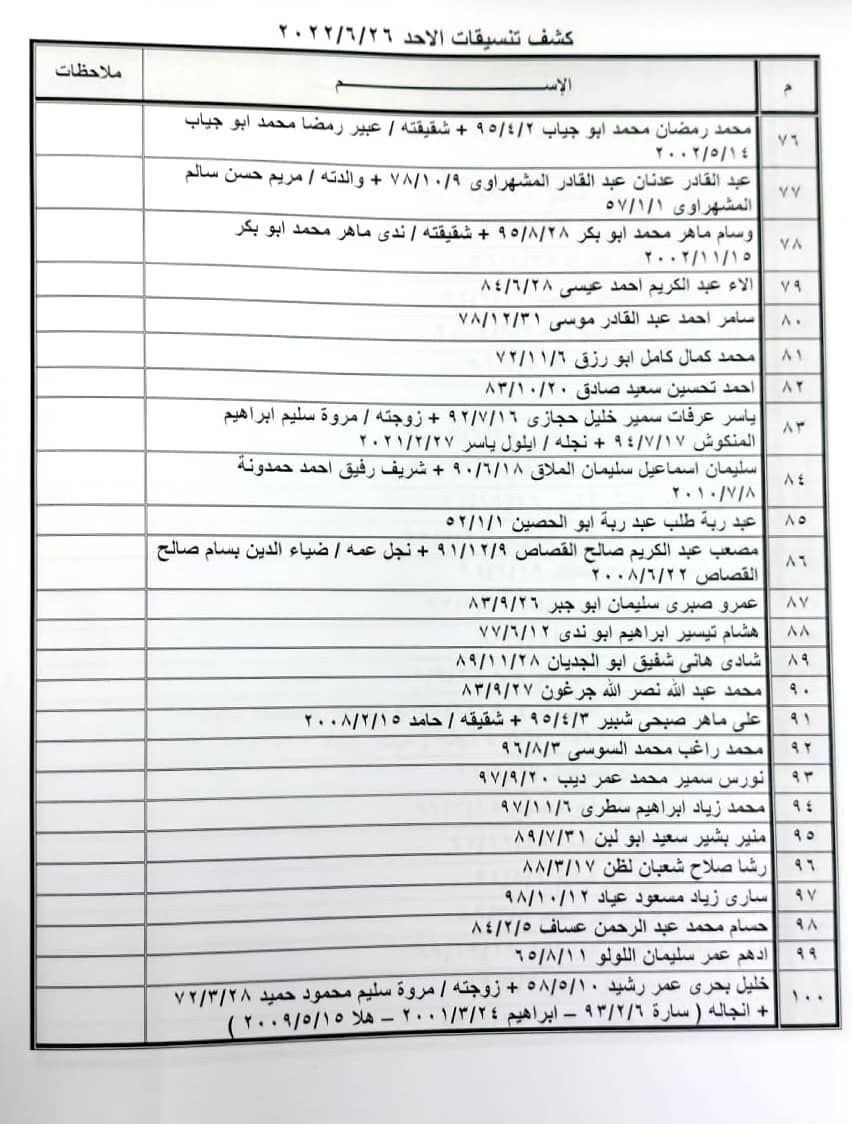 كشف تنسيقات الاحد ٢٠٢٢/٦/٢٦
م الإســـم ملاحظات
٧٦ محمد رمضان محمد ابو جياب ٩٥/٤/٢ + شقيقته / عبير رمضا محمد ابو جياب
٢٠٠٢/٥/١٤
٧٧ عبد القادر عدنان عبد القادر المشهراوى ٧٨/١٠/٩ + والدته / مريم حسن سالم
المشهراوى ٥٧/١/١
٧٨ وسام ماهر محمد ابو بكر ٩٥/٨/٢٨ + شقيقته / ندى ماهر محمد ابو بكر
٢٠٠٢/١١/١٥
٧٩ الاء عبد الكريم احمد عيسى ٨٤/٦/٢٨
٨٠ سامر احمد عبد القادر موسى ٧٨/١٢/٣١
٨١ محمد كمال كامل ابو رزق ٧٢/١١/٦
٨٢ احمد تحسين سعيد صادق ٨٣/١٠/٢٠
٨٣ ياسر عرفات سمير خليل حجازى ٩٢/٧/١٦ + زوجته / مروة سليم ابراهيم
المنكوش ٩٤/٧/١٧ + نجله / ايلول ياسر ٢٠٢١/٢/٢٧
٨٤ سليمان اسماعيل سليمان الملاق ٩٠/٦/١٨ + شريف رفيق احمد حمدونة
٢٠١٠/٧/٨
٨٥ عبد ربة طلب عبد ربة ابو الحصين ٥٢/١/١
٨٦ مصعب عبد الكريم صالح القصاص ٩١/١٢/٩ + نجل عمه / ضياء الدين بسام صالح
القصاص ٢٠٠٨/٦/٢٢
٨٧ عمرو صبرى سليمان ابو جبر ٨٣/٩/٢٦
٨٨ هشام تيسير ابراهيم ابو ندى ٧٧/٦/١٢
٨٩ شادى هانى شفيق ابو الجديان ٨٩/١١/٢٨
٩٠ محمد عبد الله نصر الله جرغون ٨٣/٩/٢٧
٩١ على ماهر صبحى شبير ٩٥/٤/٣ + شقيقه / حامد ٢٠٠٨/٢/١٥
٩٢ محمد راغب محمد السوسى ٩٦/٨/٣
٩٣ نورس سمير محمد عمر ديب ٩٧/٩/٢٠
٩٤ محمد زياد ابراهيم سطرى ٩٧/١١/٦
٩٥ منير بشير سعيد ابو لبن ٨٩/٧/٣١
٩٦ رشا صلاح شعبان لظن ٨٨/٣/١٧
٩٧ سارى زياد مسعود عياد ٩٨/١٠/١٢
٩٨ حسام محمد عبد الرحمن عساف ٨٤/٢/٥
٩٩ ادهم عمر سليمان اللولو ٦٥/٨/١١
١٠٠ خليل بحرى عمر رشيد ٥٨/٥/١٠ + زوجته / مروة سليم محمود حميد ٧٢/٣/٢٨
+ انجاله ( سارة ٩٣/٢/٦ – ابراهيم ٢٠٠١/٣/٢٤ – هلا ٢٠٠٩/٥/١٥ )